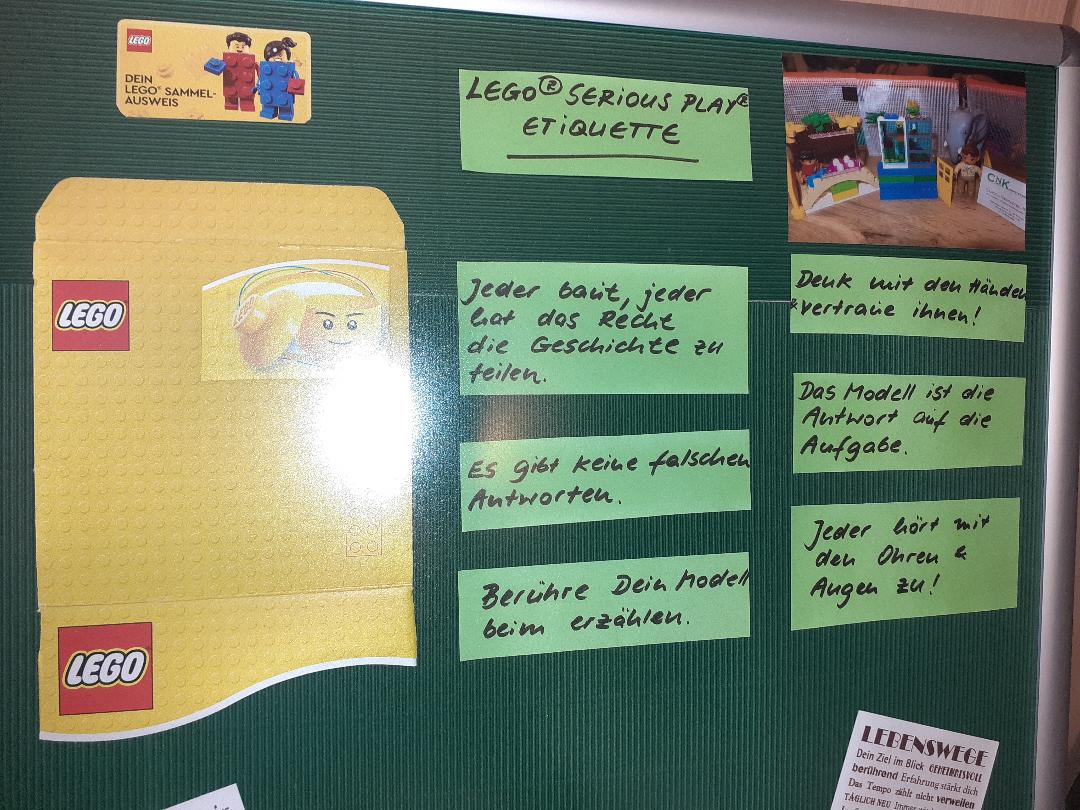 LEGO
DEIN
LEGO® SAMMEL-
AUSWEIS
LEGO® SERIOUS PLAY®
ETIQUETTE
LEGO
LEGO
Jeder baut, jeder
hat das Recht
die Geschichte zu
teilen.
Es gibt keine falschen
Antworten.
Berühre Dein Modell
beim erzählen.
CNK
Denk mit den Händen
& vertraue ihnen!
Das Modell ist die
Antwort auf die
Aufgabe.
Jeder hört mit
den Ohren &
Augen zu!
LEBENSWEGE
Dein Ziel im Blick GEHEIMNISVOLL
berührend Erfahrung stärkt dich
Das Tempo zählt nicht verweilen
TÄGLICH NEU